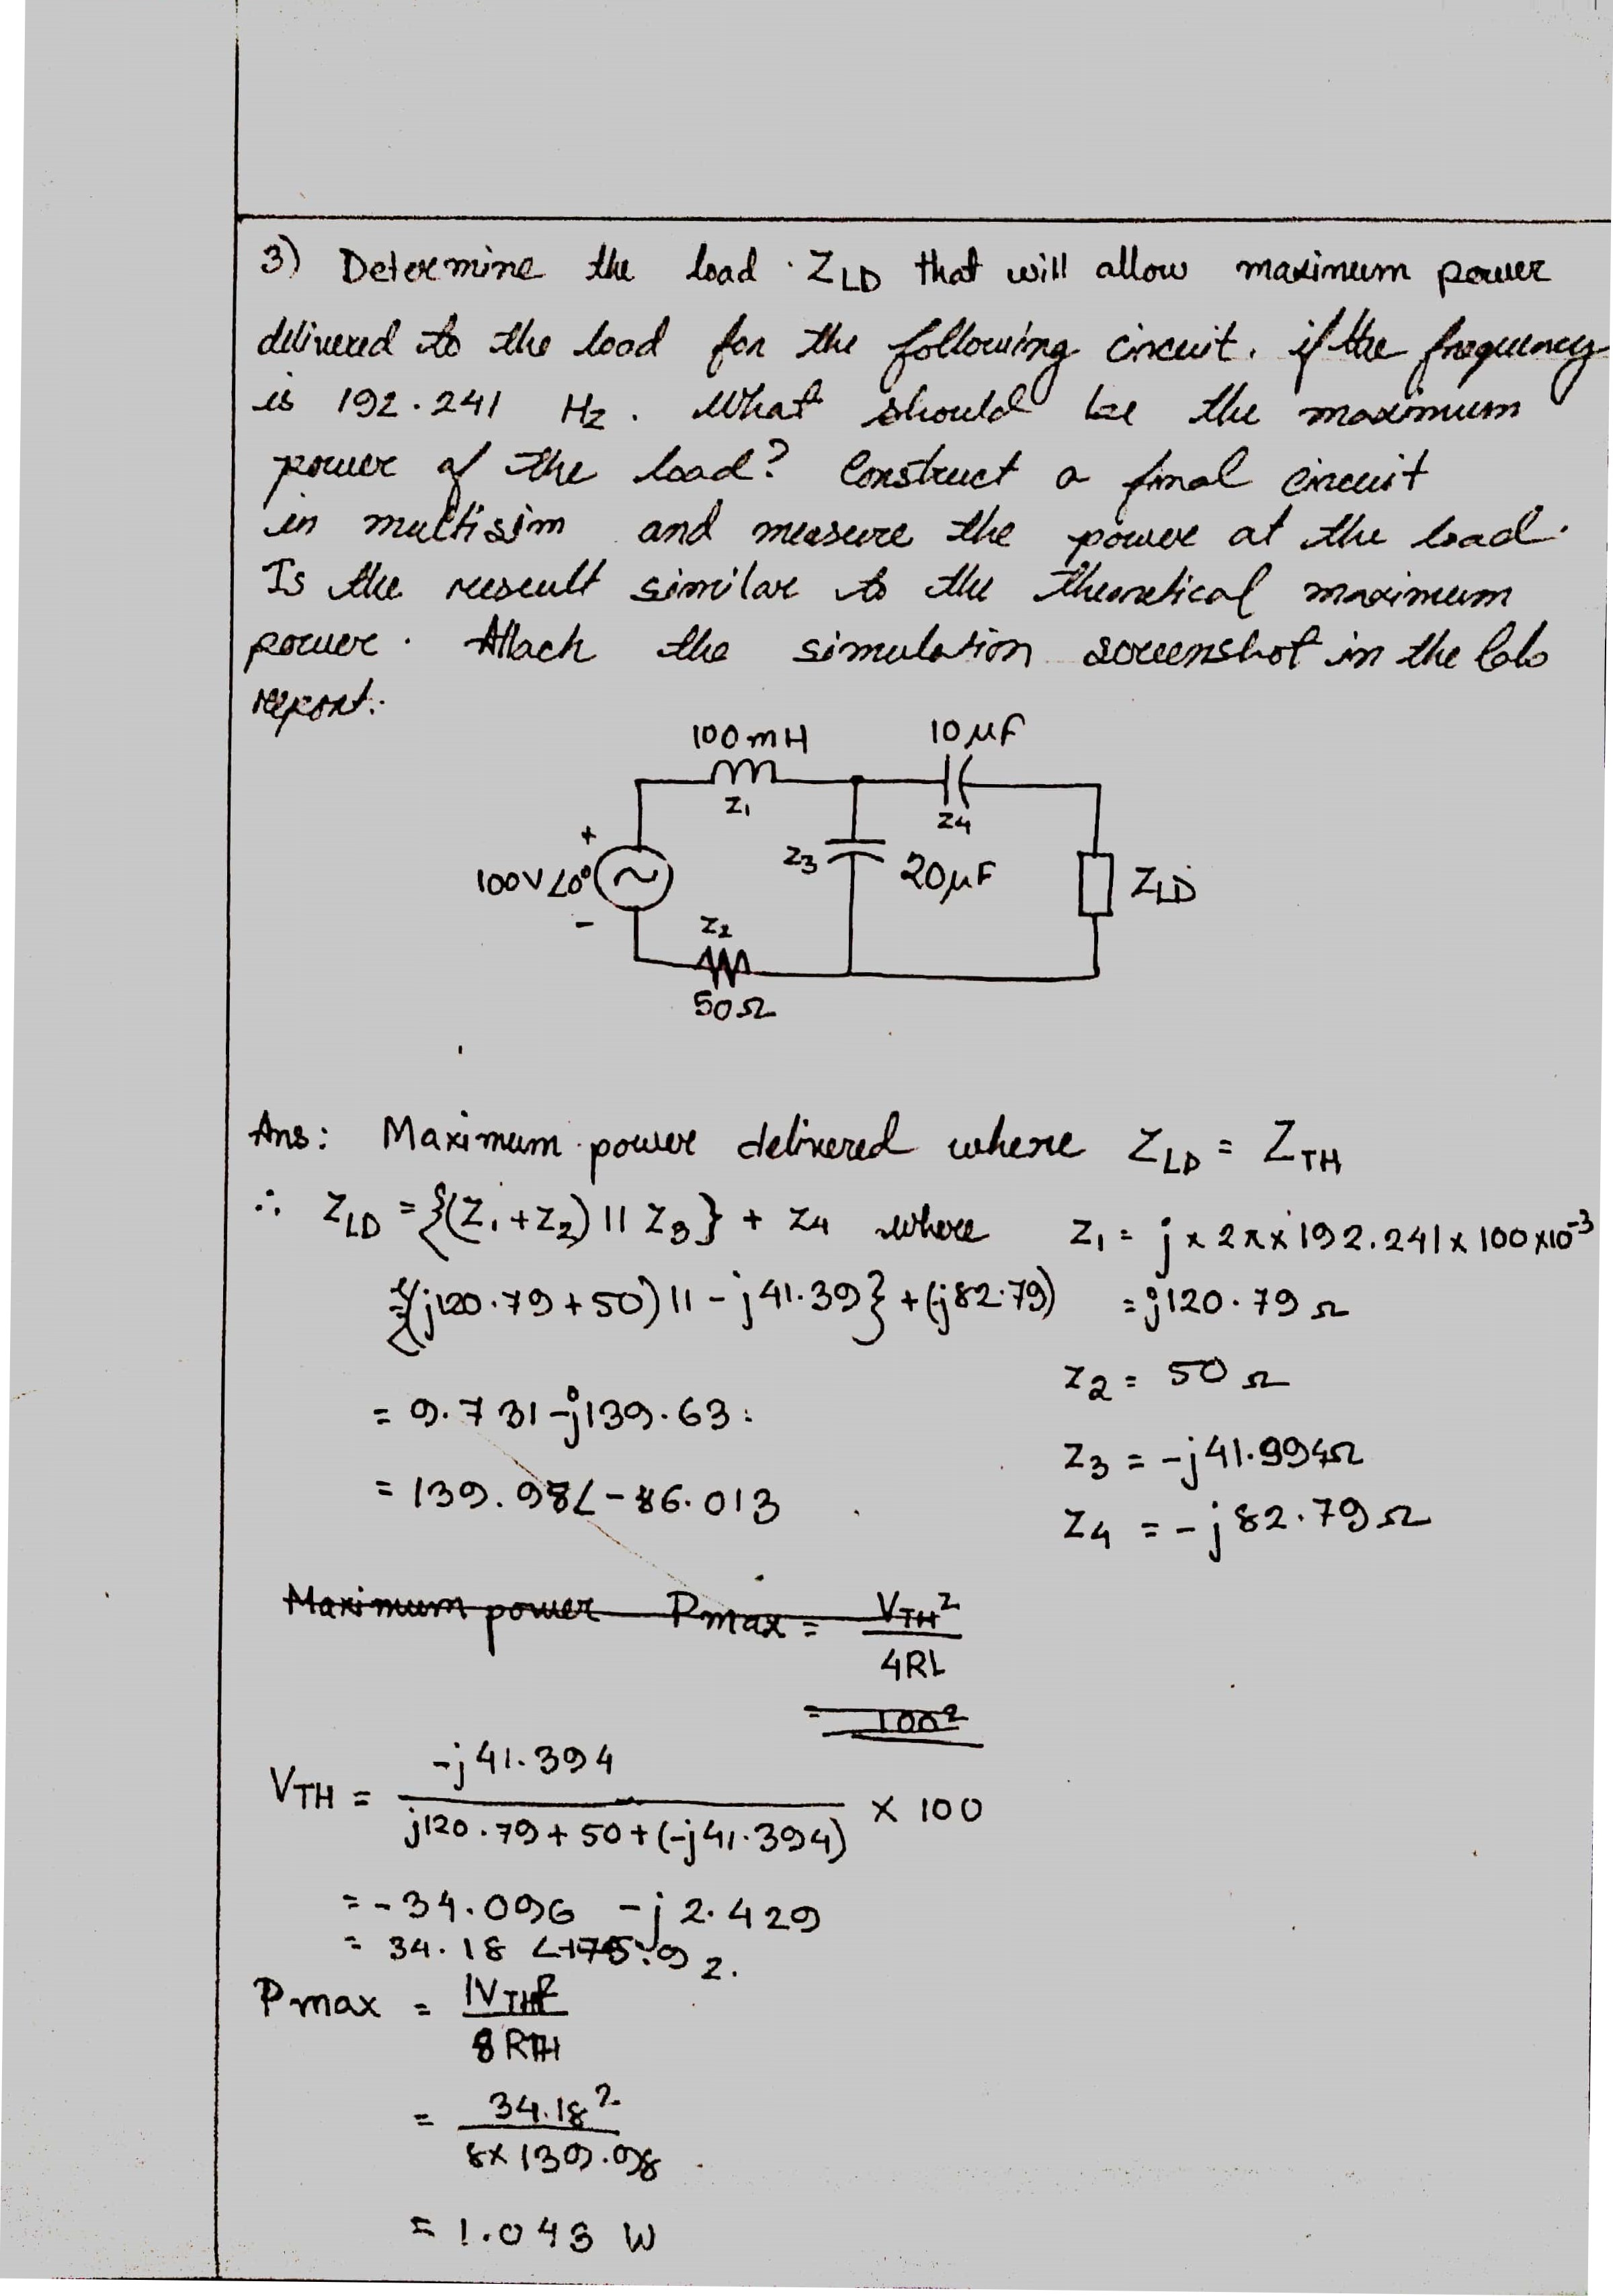 3) Determine the load Z_LD that will allow maximum power
delivered to the load for the following circuit. if the frequency
is 192.241 Hz. What should be the maximum
power of the load? Construct a final circuit
in multisim and measure the power at the load.
Is the result similar to the theoretical maximum
power. Attach the simulation screenshot in the lab
report.
100mH 10μF
Z₁ Z₄
100V∠0° + - Z₃ 20μF Z_LD
Z₂
50Ω
Ans: Maximum power delivered where Z_LD = Z_TH
∴ Z_LD = {(Z₁+Z₂) || Z₃} + Z₄ where Z₁ = j × 2π × 192.241 × 100 × 10⁻³
= {(j120.79 + 50) || -j41.39} + (-j82.79) = j120.79 Ω
Z₂ = 50 Ω
= 9.731 - j139.63
Z₃ = -j41.994Ω
= 139.98∠-86.013
Z₄ = -j82.79 Ω
Maximum power Pmax = V_TH² / 4RL
= 100²
V_TH = -j41.394 / (j120.79 + 50 + (-j41.394)) × 100
= -34.096 - j2.429
= 34.18
Pmax = |V_TH|² / 8 R_TH
= 34.18² / 8×139.98
= 1.043 W